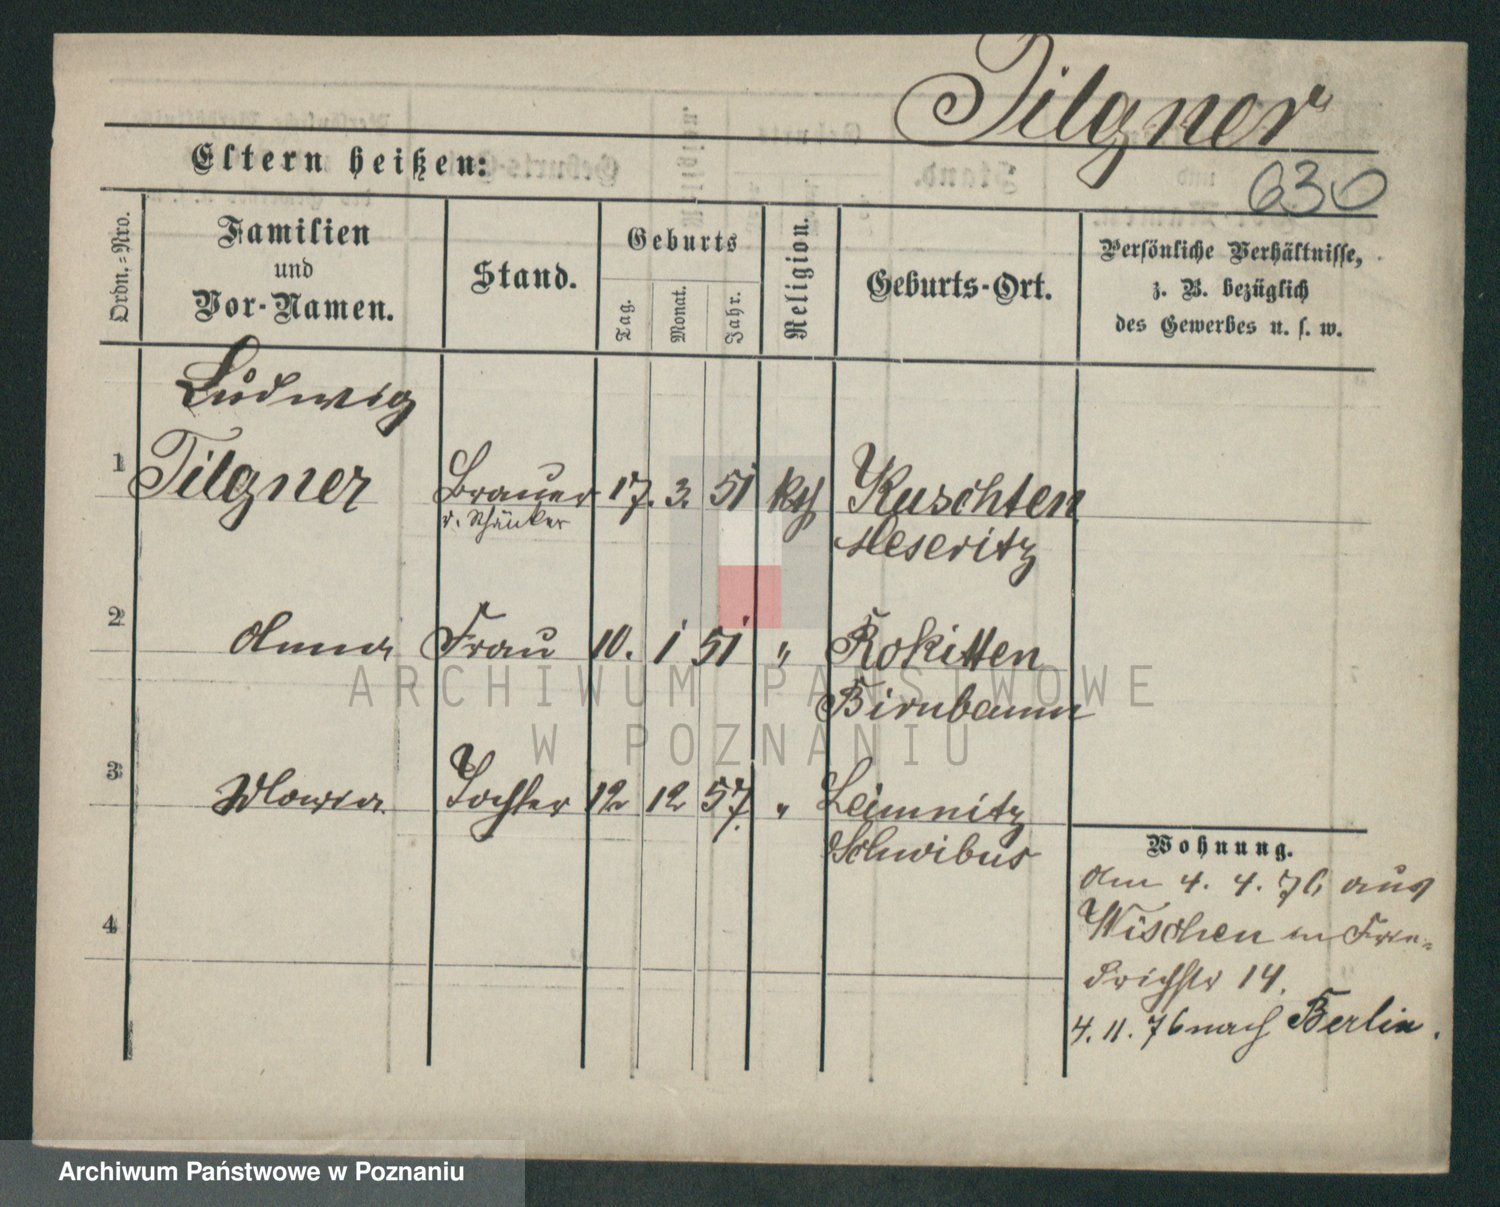 Tilgner
630
Eltern heißen:
Ordn.-Nro.
Familien
und
Vor-Namen.
Stand.
Geburts
Tag.
Monat.
Jahr.
Religion.
Geburts-Ort.
Persönliche Verhältnisse,
z. B. bezüglich
des Gewerbes u. s. w.
Ludwig
1 Tilgner Brauer 17. 3. 51 kth Kuschten
v. Schänker Meseritz
2 Anna Frau 10. 1 51 " Rokitten
Birnbaum
3 Maria Tochter 12 12 57. " Leimnitz
Schwibus
4
Wohnung.
Am 4. 4. 76 aus
Wischen in Frie-
drichstr 14.
4. 11. 76 nach Berlin.
ARCHIWUM PAŃSTWOWE
W POZNANIU
Archiwum Państwowe w Poznaniu